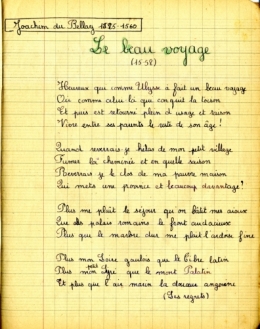 Joachim du Bellay 1525-1560
Le beau voyage
(1558)
Heureux qui comme Ulysse a fait un beau voyage
Ou comme celui là qui conquit la toison
Et puis est retourné plein d'usage et raison
Vivre entre ses parents le reste de son âge !
Quand reverrai-je hélas de mon petit village
Fumer la cheminée et en quelle saison
Reverrai-je le clos de ma pauvre maison
Qui m'est une province et beaucoup davantage ?
Plus me plaît le séjour qu'on bâti mes aïeux
Que des palais romains le front audacieux
Plus que le marbre dur me plaît l'ardoise fine
Plus mon Loire gaulois que le Tibre latin
Plus mon petit Lyré que le mont Palatin
Et plus que l'air marin la douceur angevine
(Les regrets)